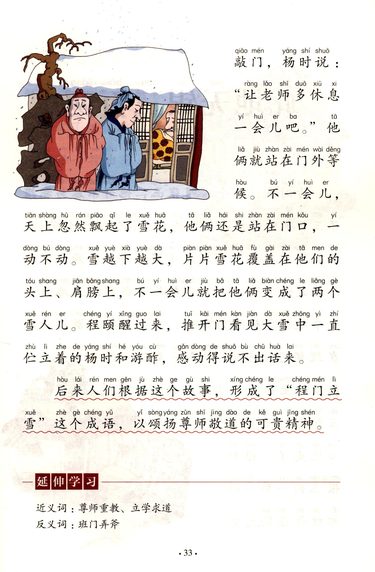 qiāo mén yáng shí shuō
敲门，杨时说：
ràng lǎo shī duō xiū xi
“让老师多休息
yí huì er ba tā
一会儿吧。”他
liǎ jiù zhàn zài mén wài děng
俩就站在门外等
hòu bù yí huì er
候。不一会儿，
tiān shàng hū rán piāo qǐ le xuě huā tā liǎ hái shì zhàn zài mén kǒu yí
天上忽然飘起了雪花，他俩还是站在门口，一
dòng bú dòng xuě yuè xià yuè dà piàn piàn xuě huā fù gài zài tā men de
动不动。雪越下越大，片片雪花覆盖在他们的
tóu shang jiān bǎng shàng bù yí huì er jiù bǎ tā liǎ biàn chéng le liǎng gè
头上、肩膀上，不一会儿就把他俩变成了两个
xuě rén er chéng yí xǐng guò lai tuī kāi mén kàn jiàn dà xuě zhōng yì zhí
雪人儿。程颐醒过来，推开门看见大雪中一直
zhù lì zhe de yáng shí hé yóu cù gǎn dòng de shuō bù chū huà lai
伫立着的杨时和游酢，感动得说不出话来。
hòu lái rén men gēn jù zhè ge gù shi xíng chéng le chéng mén lì
后来人们根据这个故事，形成了“程门立
xuě zhè gè chéng yǔ yǐ sòng yáng zūn shī jìng dào de kě guì jīng shén
雪”这个成语，以颂扬尊师敬道的可贵精神。
延伸学习
近义词：尊师重教、立学求道
反义词：班门弄斧
·33·